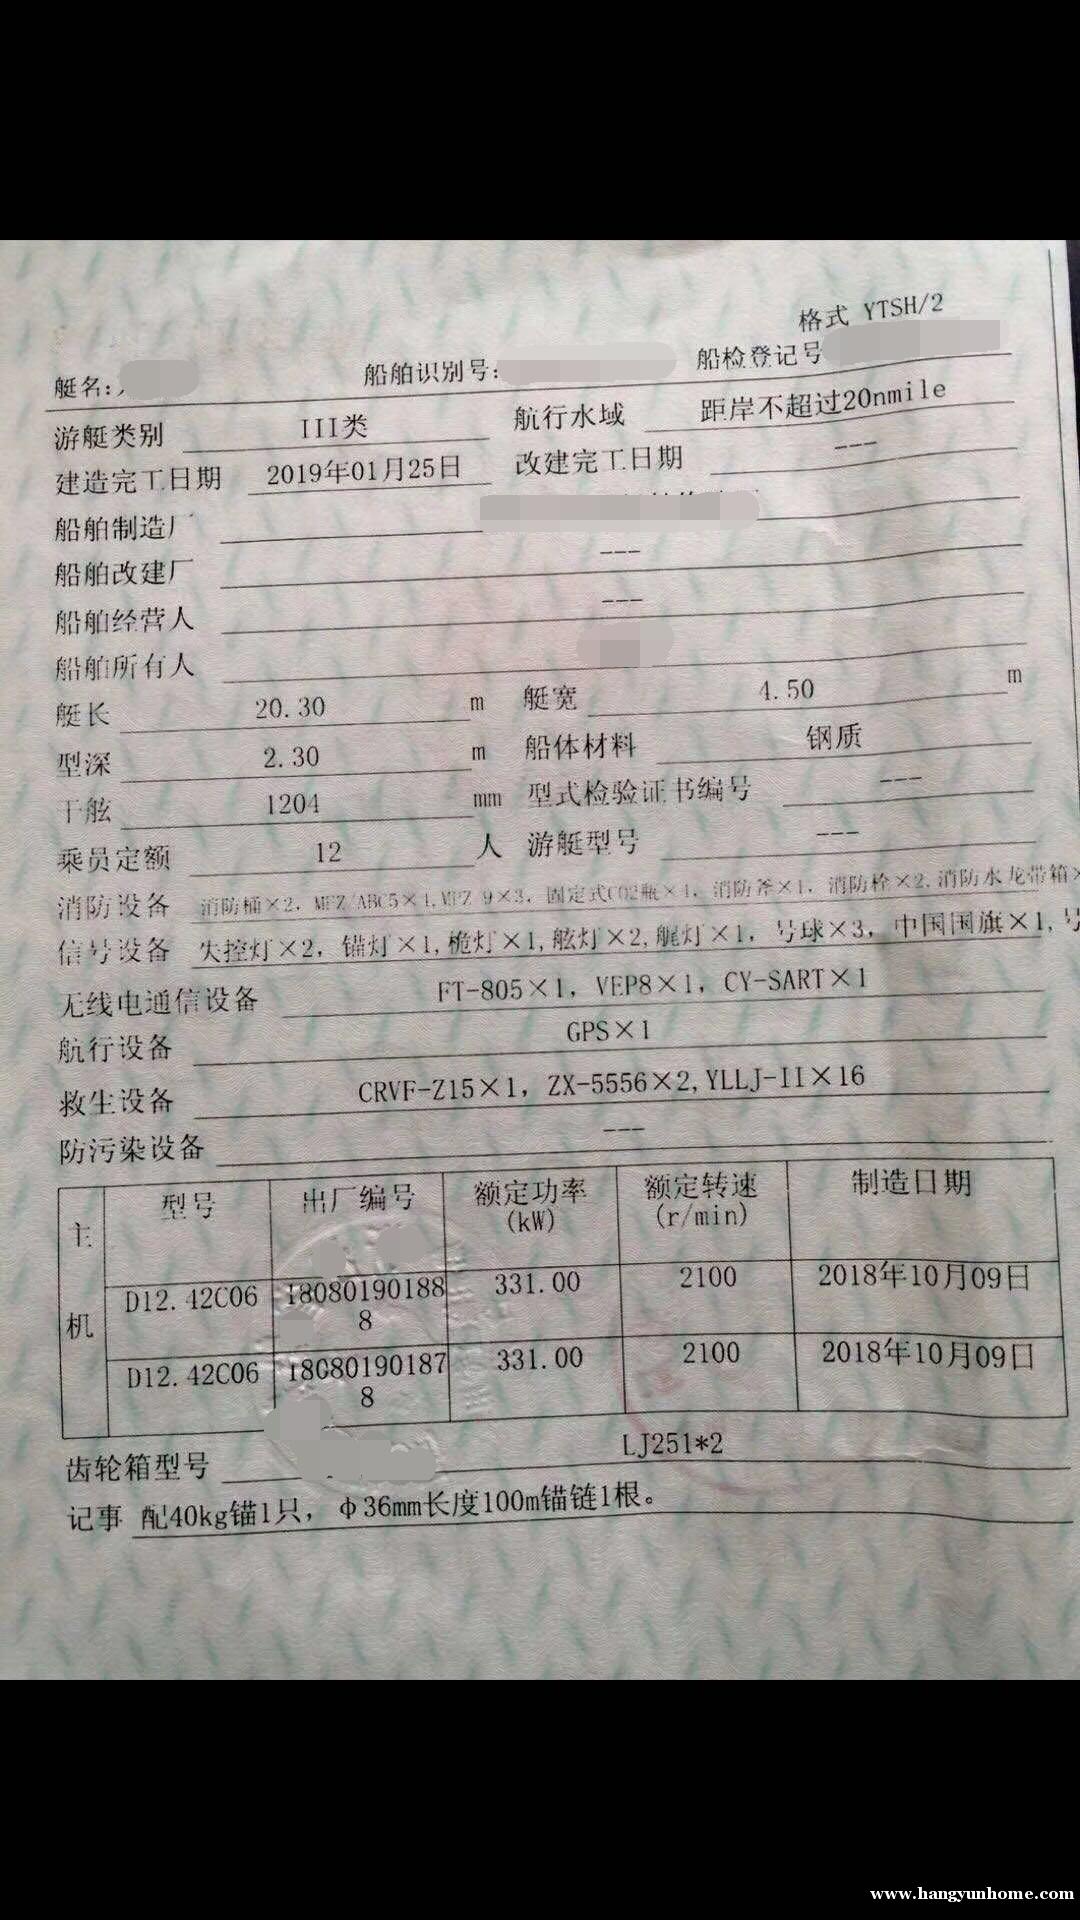 格式 YTSH/2
艇名: 船舶识别号: 船检登记号
游艇类别 III类 航行水域 距岸不超过20nmile
建造完工日期 2019年01月25日 改建完工日期 ---
船舶制造厂
船舶改建厂 ---
船舶经营人 ---
船舶所有人
艇长 20.30 m 艇宽 4.50 m
型深 2.30 m 船体材料 钢质
干舷 1204 mm 型式检验证书编号 ---
乘员定额 12 人 游艇型号 ---
消防设备 消防桶×2, MFZ/ABC5×4,MFZ 9×3, 固定式CO2瓶×4, 消防斧×1, 消防栓×2,消防水龙带箱×
信号设备 失控灯×2, 锚灯×1,桅灯×1,舷灯×2,艉灯×1, 号球×3, 中国国旗×1,号
无线电通信设备 FT-805×1, VEP8×1, CY-SART×1
航行设备 GPS×1
救生设备 CRVF-Z15×1, ZX-5556×2,YLLJ-II×16
防污染设备 ---
主机 型号 出厂编号 额定功率(kW) 额定转速(r/min) 制造日期
D12.42C06 180801901888 331.00 2100 2018年10月09日
D12.42C06 180801901878 331.00 2100 2018年10月09日
齿轮箱型号 LJ251*2
记事 配40kg锚1只, φ36mm长度100m锚链1根。
www.hangyunhome.com